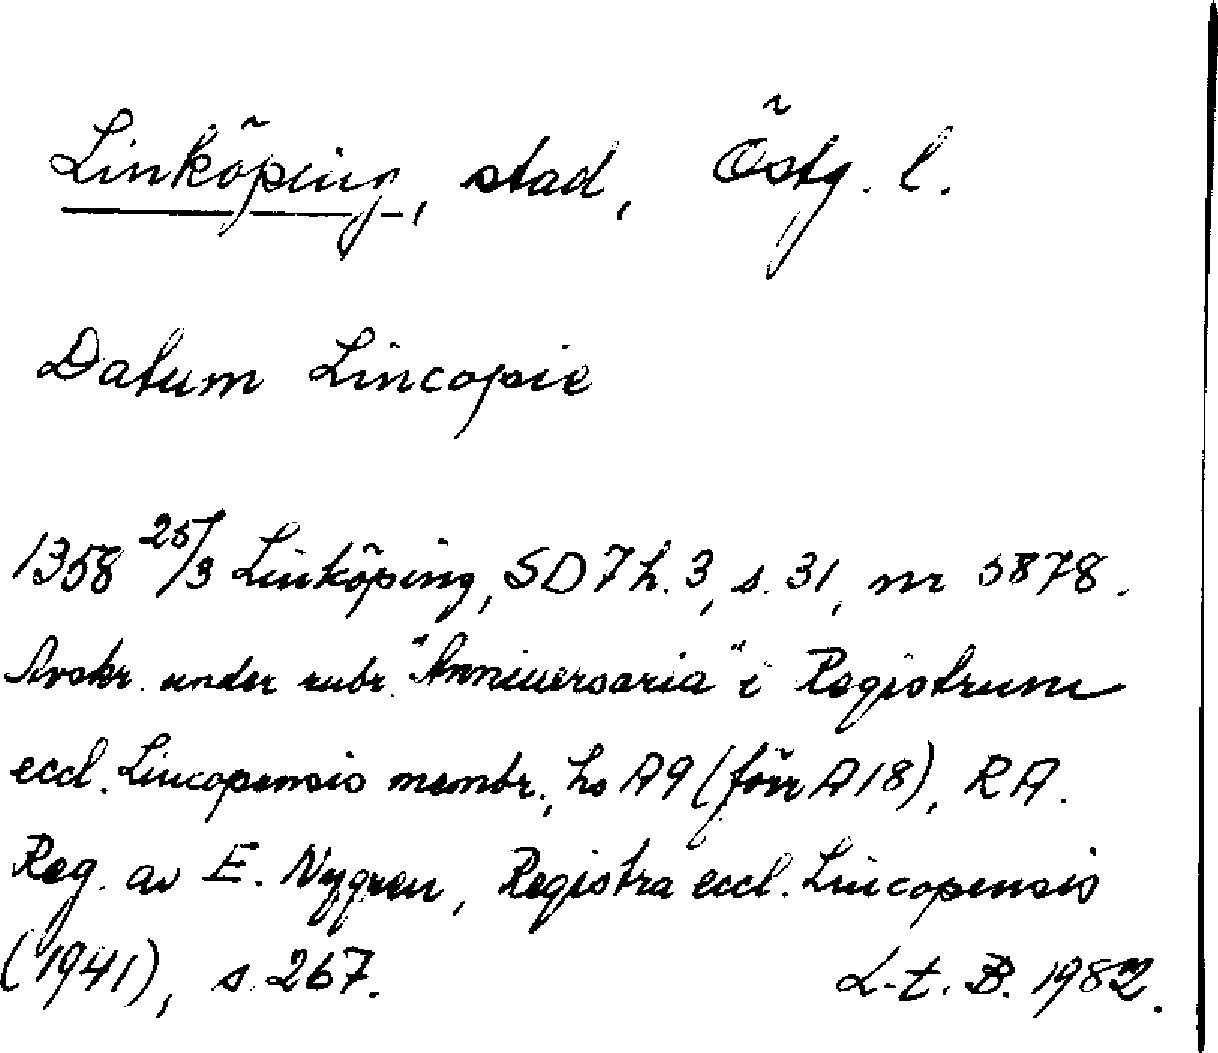 Linköping, stad, Östg. l.
Datum Lincopie
1358 25/3 Linköping, SD 7 h. 3, s. 31, nr 5878.
Avskr. under rubr. "Anniuersaria" i Registrum
eccl. Lincopensis membr., hs A9 (förr A18), RA.
Reg. av E. Nygren, Registra eccl. Lincopensis
(1941), s. 267. L-t. B. 1982.